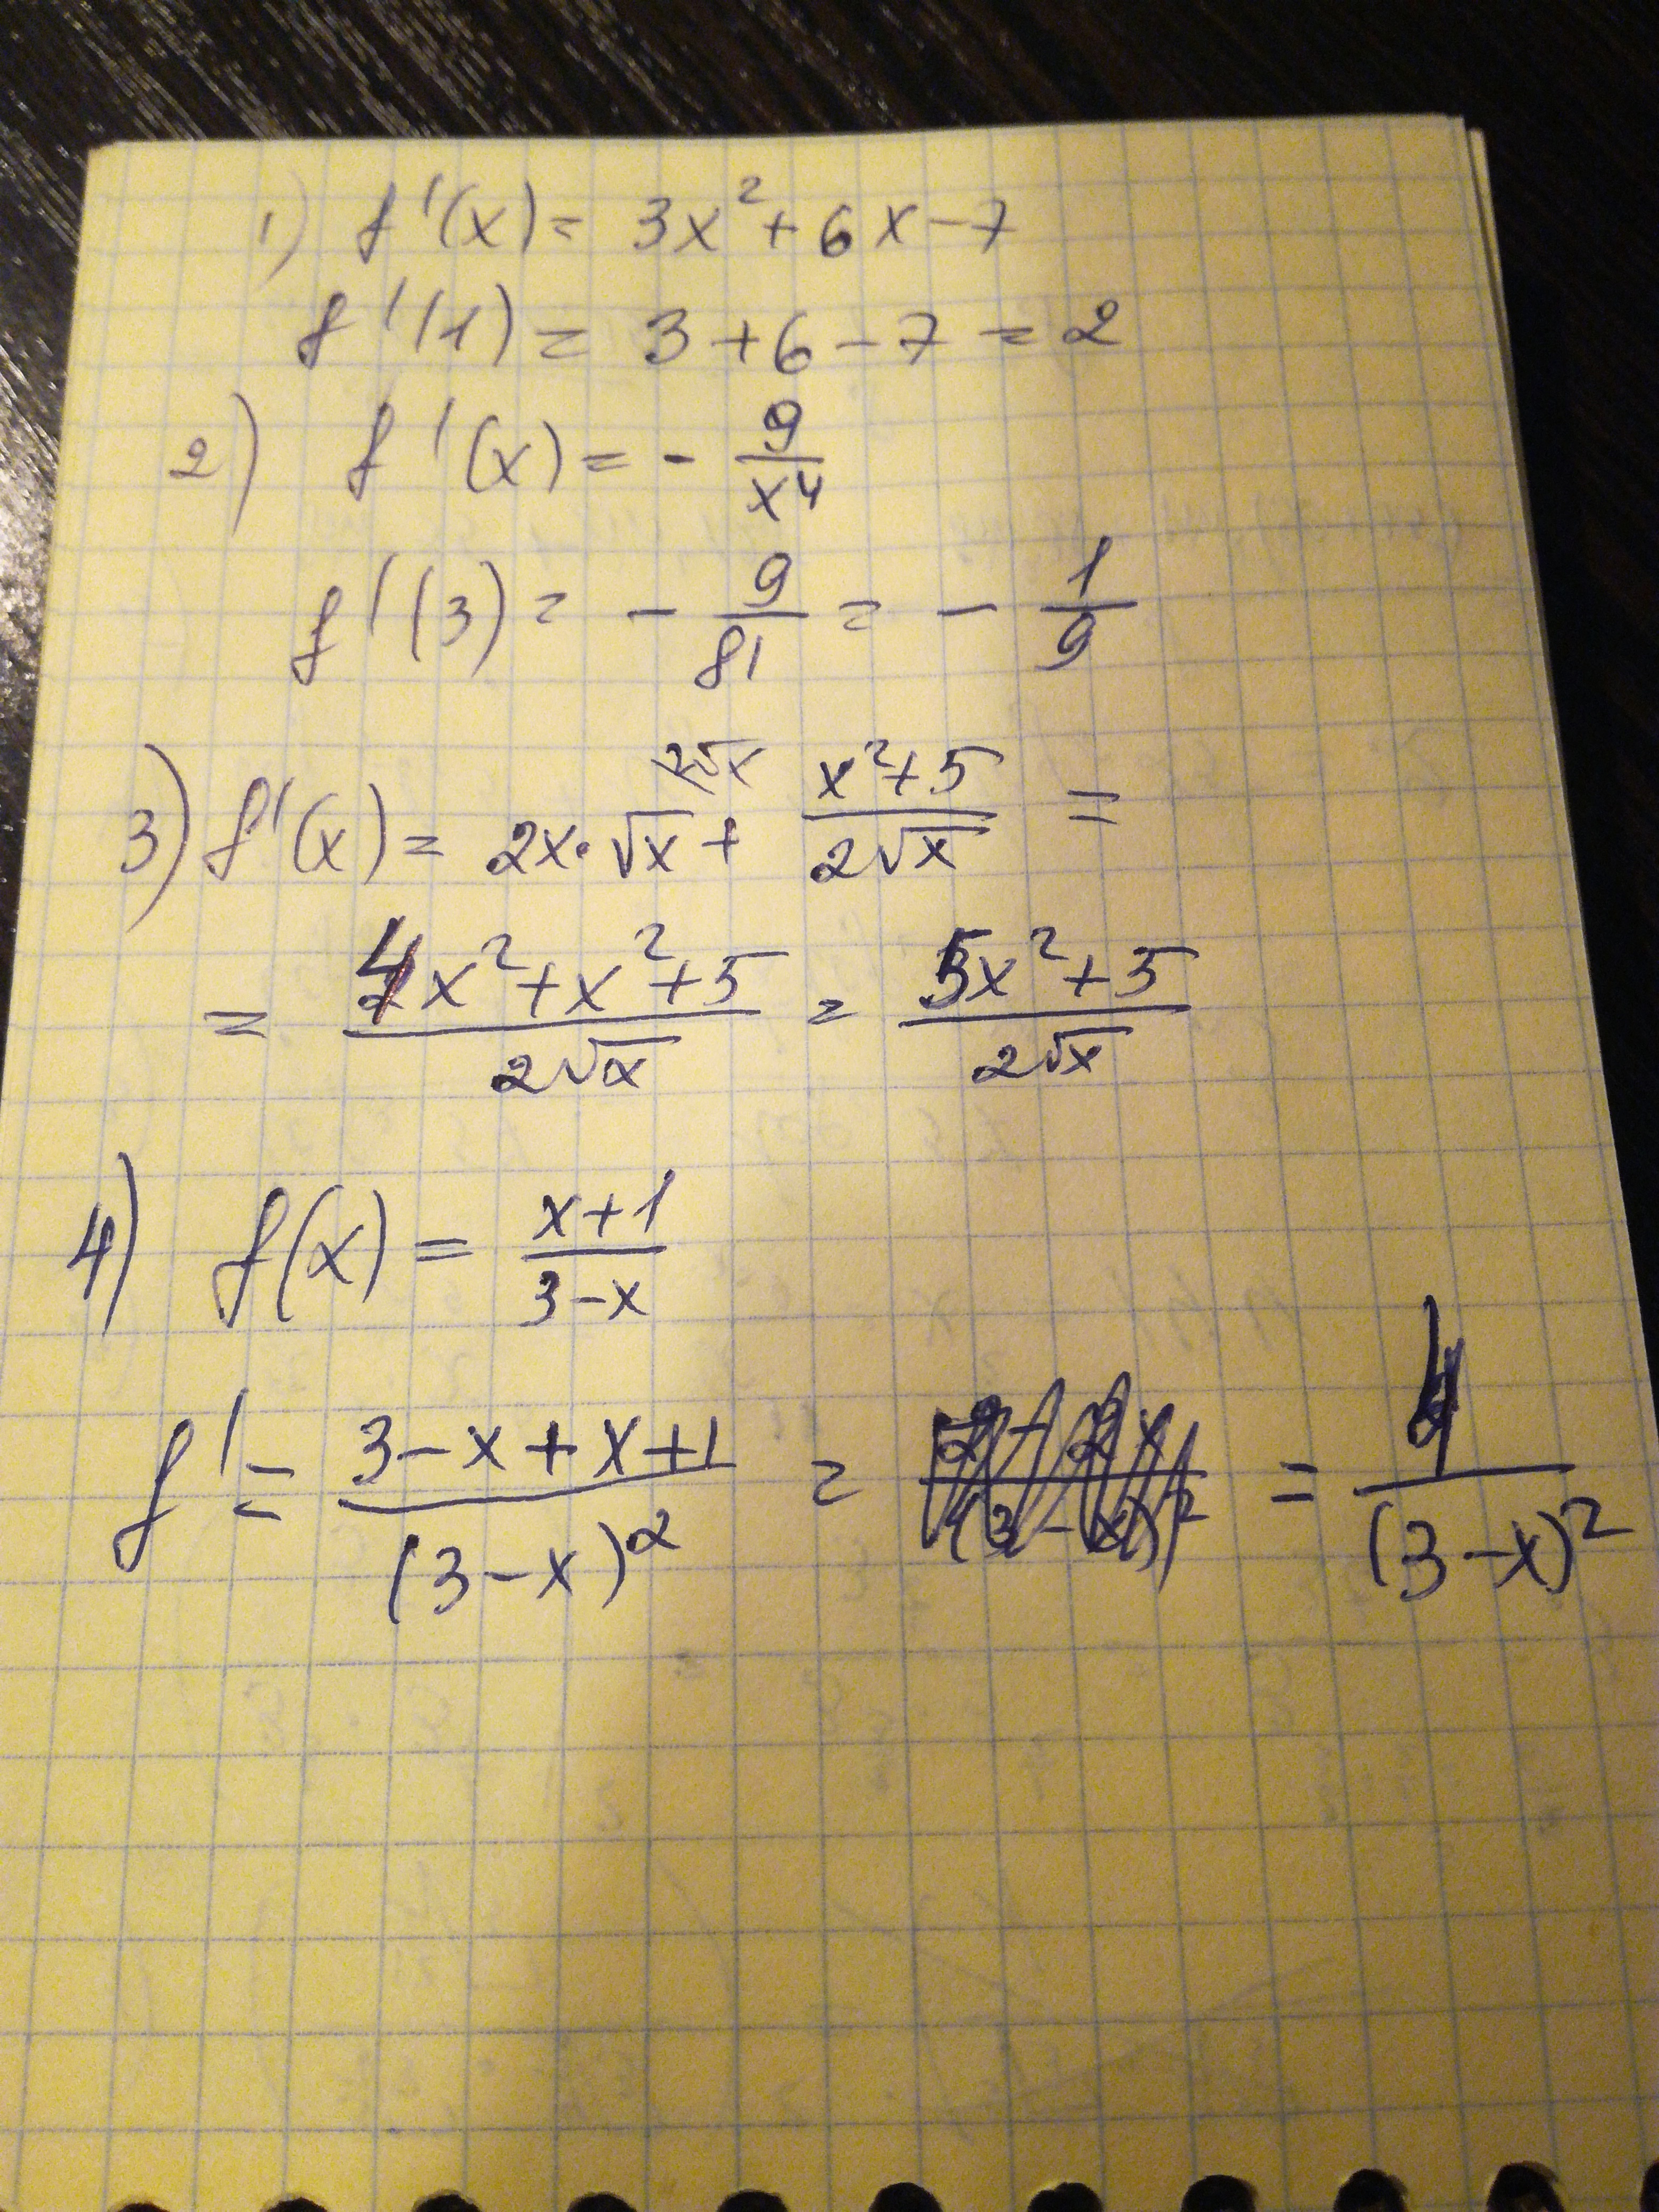 1) f'(x) = 3x² + 6x - 7
f'(1) = 3 + 6 - 7 = 2
2) f'(x) = - 9/x⁴
f'(3) = - 9/81 = - 1/9
3) f'(x) = 2x · √x + (x² + 5)/(2√x) =
= (4x² + x² + 5)/(2√x) = (5x² + 5)/(2√x)
4) f(x) = (x + 1)/(3 - x)
f' = (3 - x + x + 1)/(3 - x)² = = 4/(3 - x)²